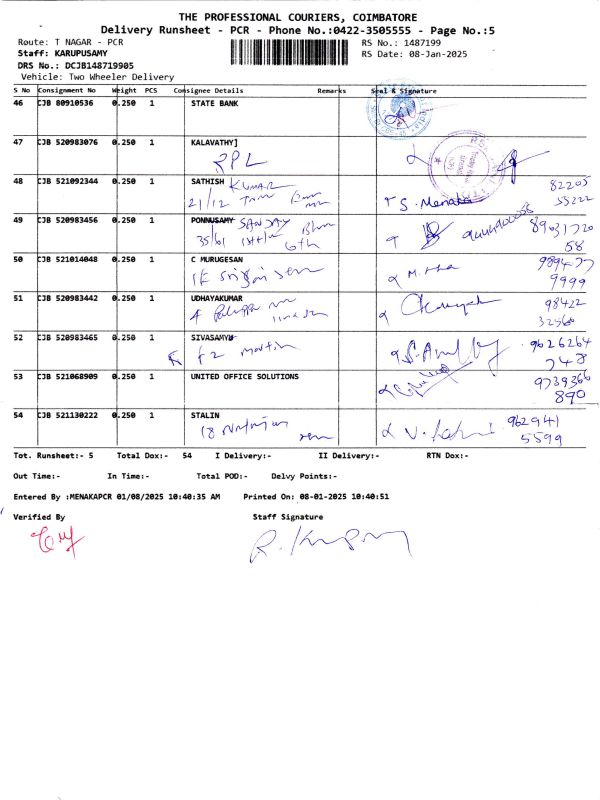 THE PROFESSIONAL COURIERS, COIMBATORE
Delivery Runsheet - PCR - Phone No.:0422-3505555 - Page No.:5
Route: T NAGAR - PCR RS No.: 1487199
Staff: KARUPUSAMY RS Date: 08-Jan-2025
DRS No.: DCJB148719905
Vehicle: Two Wheeler Delivery
S No Consignment No Weight PCS Consignee Details Remarks Seal & Signature
46 CJB 80910536 0.250 1 STATE BANK
47 CJB 520983076 0.250 1 KALAVATHY]
RPL
48 CJB 521092344 0.250 1 SATHISH KUMAR 82205
21/12 S. Menaka 55222
49 CJB 520983456 0.250 1 PONNUSAMY SANJAY 89031720
35/61 6th 58
50 CJB 521014048 0.250 1 C MURUGESAN 989477
9999
51 CJB 520983442 0.250 1 UDHAYAKUMAR 98422
32560
52 CJB 520983465 0.250 1 SIVASAMY 9626264
F2 martin 748
53 CJB 521068909 0.250 1 UNITED OFFICE SOLUTIONS 9739366
890
54 CJB 521130222 0.250 1 STALIN 962941
18 5599
Tot. Runsheet:- 5 Total Dox:- 54 I Delivery:- II Delivery:- RTN Dox:-
Out Time:- In Time:- Total POD:- Delvy Points:-
Entered By :MENAKAPCR 01/08/2025 10:40:35 AM Printed On: 08-01-2025 10:40:51
Verified By Staff Signature